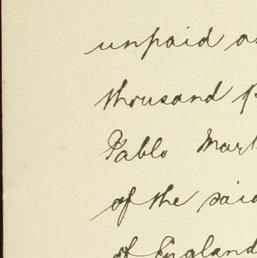 unpaid
thousand
Pablo
of the said
of England